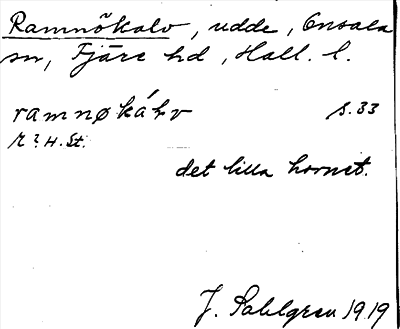 Ramnökalv, udde, Onsala
sn, Fjäre hd, Hall. l.
ramnøkálv s. 33
r? H. St.
det lilla hornet.
J. Sahlgren 1919